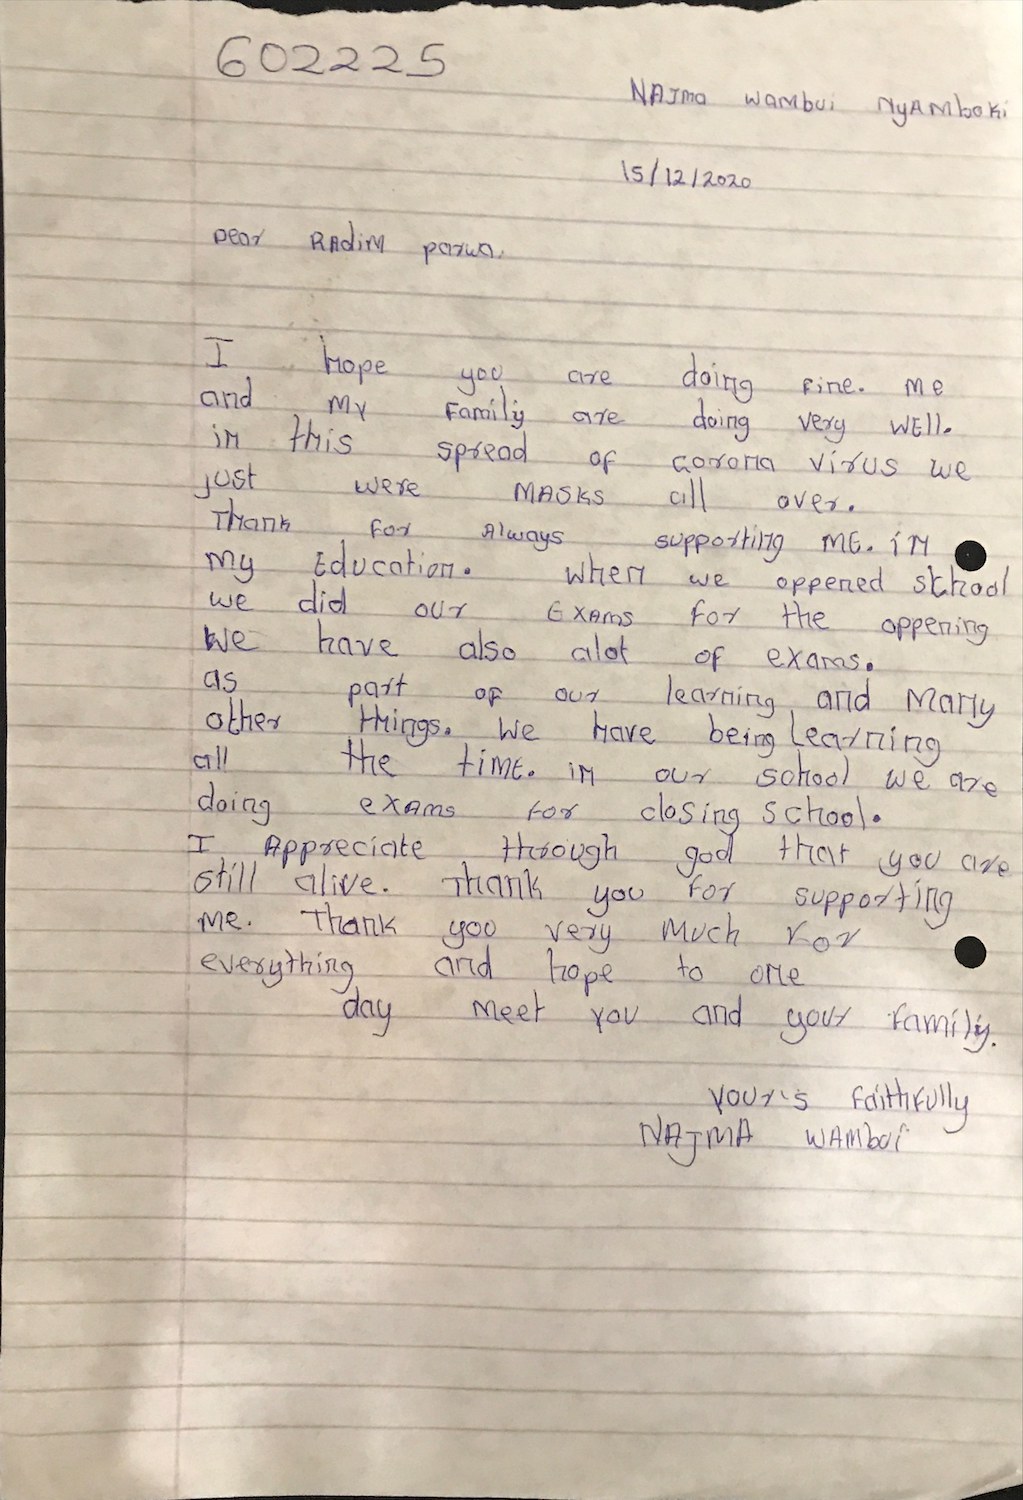 602225
NAJma wambui NyAMboki
15/12/2020
Dear RAdiM parwa.
I hope you are doing fine. Me
and My Family are doing very WEll.
in this spread of corona virus we
just were MASKS all over.
Thank for Always supporting ME. in
My Education. when we oppened school
we did our Exams for the oppening
We have also alot of exams.
as part of our learning and Many
other things. We have being Learning
all the time. in our school we are
doing exams for closing school.
I Appreciate through god that you are
still alive. Thank you for supporting
me. Thank you very Much For
everything and hope to one
day Meet you and your Family.
Your's Faithfully
NAJMA WAMbui